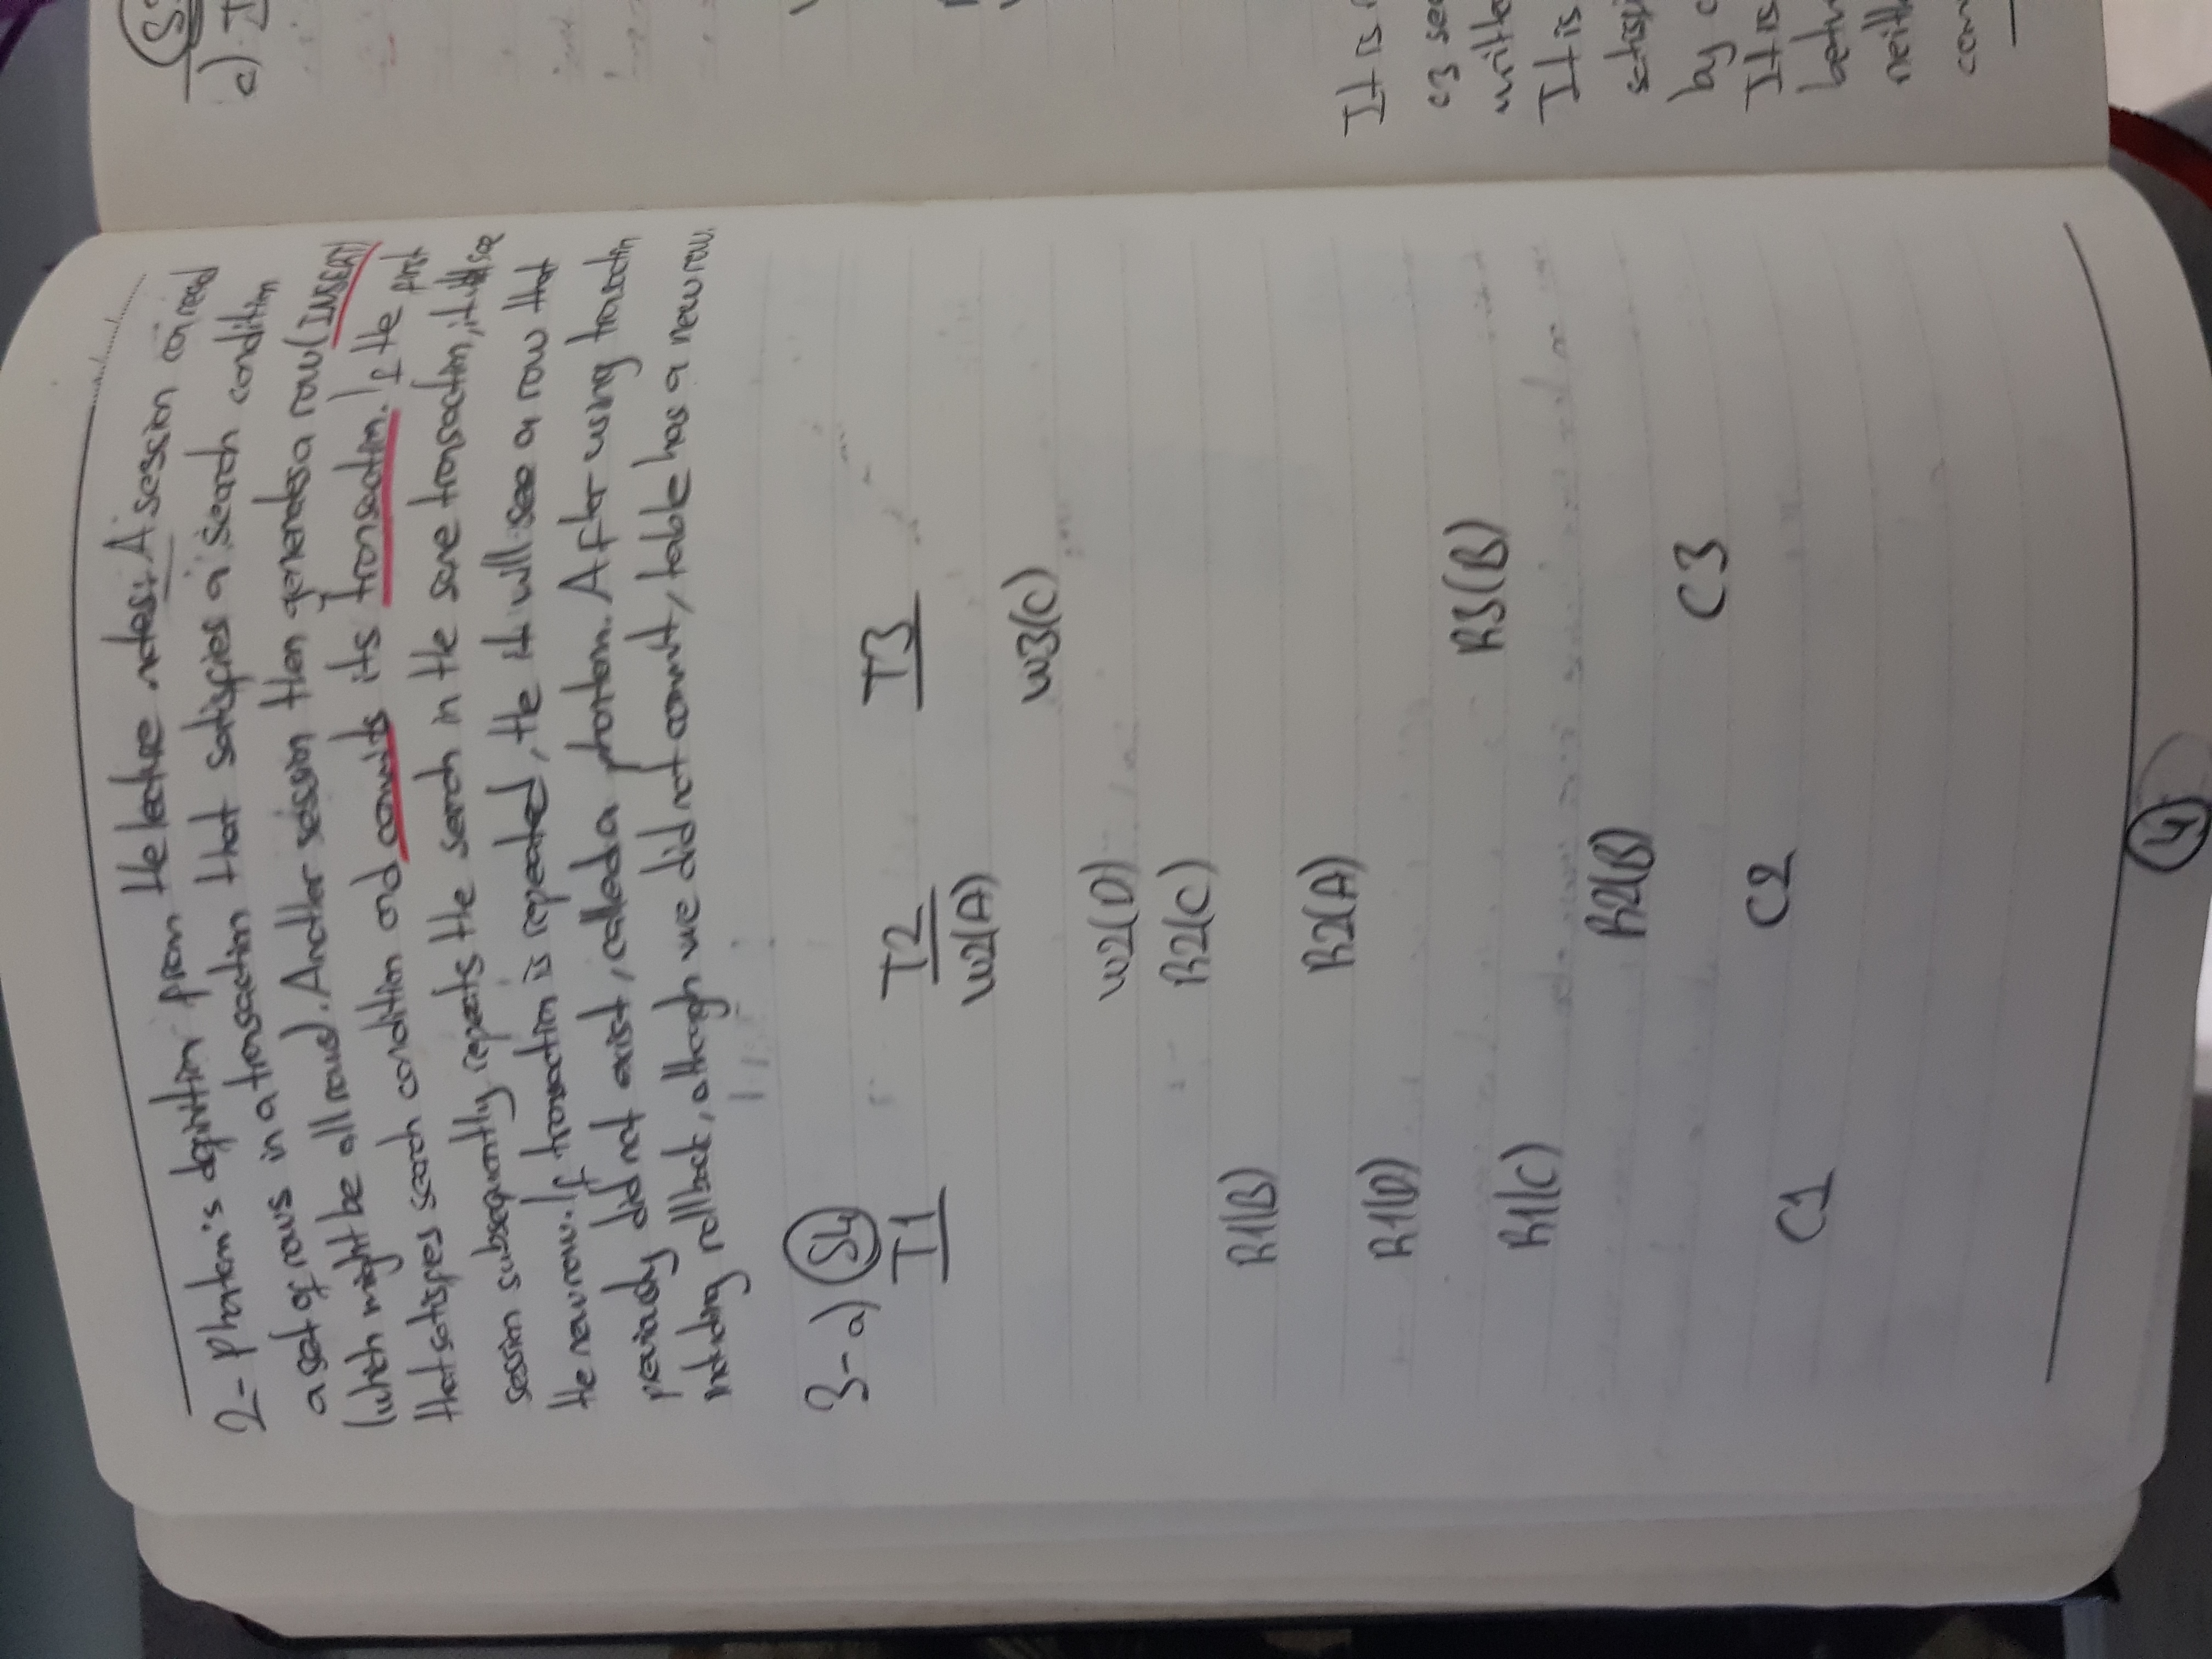 2- Phantom's definition from the lecture notes: A session can read
a set of rows in a transaction that satisfies a search condition
(which might be all rows). Another session then generates a row (INSERT)
that satisfies search condition and commits its transaction. If the first
session subsequently repeats the search in the same transaction, it will see
the new row. If transaction is repeated, the it will see a row that
previously did not exist, called a phantom. After using transaction
including rollback, although we did not commit, table has a new row.
3- a) S4
T1 T2 T3
W2(A)
W3(C)
W2(D)
R2(C)
R1(B)
R2(A)
R1(D)
R3(B)
R1(C)
R2(B)
C3
C2
C1
4
c)
It is
c3
It is
by
It is